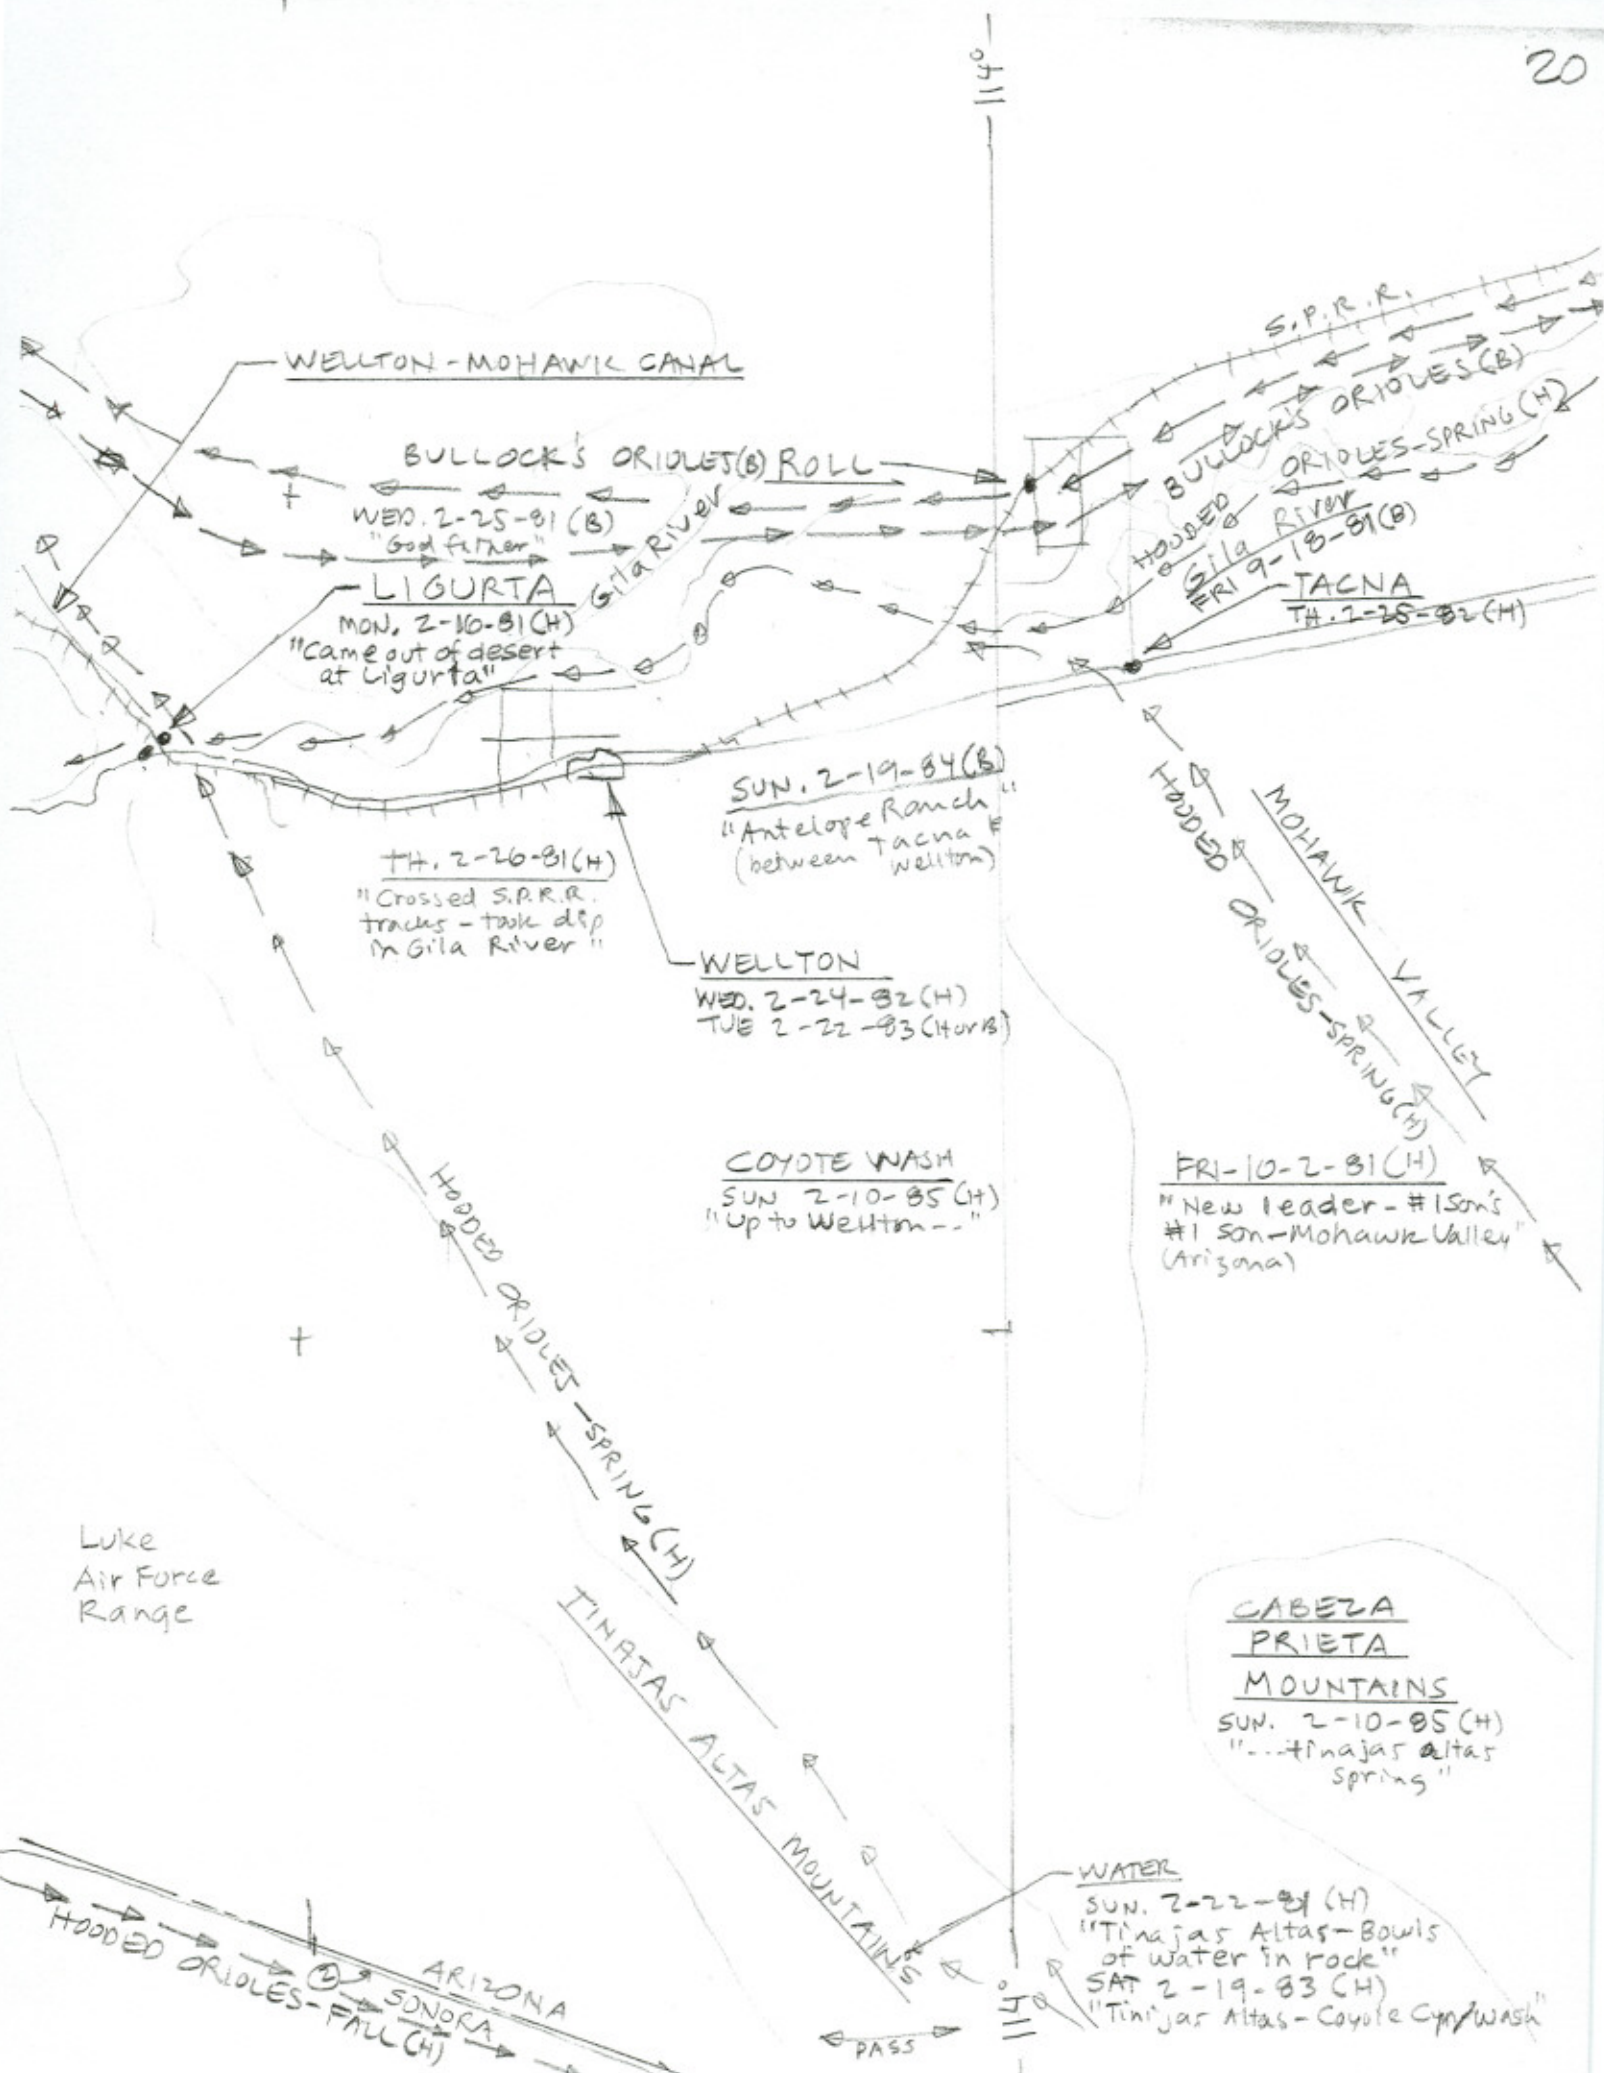 20
114°
S.P.R.R.
WELLTON-MOHAWK CANAL
BULLOCK'S ORIOLES(B)
HOODED ORIOLES-SPRING(H)
BULLOCK'S ORIOLES(B) ROLL
WED. 2-25-81(B)
"God father"
Gila River
Gila River
FRI 9-18-81(B)
TACNA
TH. 2-25-82(H)
LIGURTA
MON. 2-16-81(H)
"Came out of desert
at Ligurta"
SUN. 2-19-84(B)
"Antelope Ranch"
(between Tacna &
Wellton)
TH. 2-26-81(H)
"Crossed S.P.R.R.
tracks - took dip
in Gila River"
WELLTON
WED. 2-24-82(H)
TUE 2-22-83(HorB)
HOODED ORIOLES-SPRING(H)
MOHAWK VALLEY
COYOTE WASH
SUN 2-10-85(H)
"up to Wellton--"
FRI-10-2-81(H)
"New leader-#1Son's
#1 son-Mohawk Valley"
(Arizona)
HOODED ORIOLES-SPRING(H)
Luke
Air Force
Range
TINAJAS ALTAS MOUNTAINS
CABEZA
PRIETA
MOUNTAINS
SUN. 2-10-85(H)
"---tinajas altas
spring"
WATER
SUN. 2-22-81(H)
"Tinajas Altas-Bowls
of water in rock"
SAT 2-19-83(H)
"Tinijas Altas-Coyote Cyn/Wash"
HOODED ORIOLES-FALL(H)
2
ARIZONA
SONORA
PASS
114°